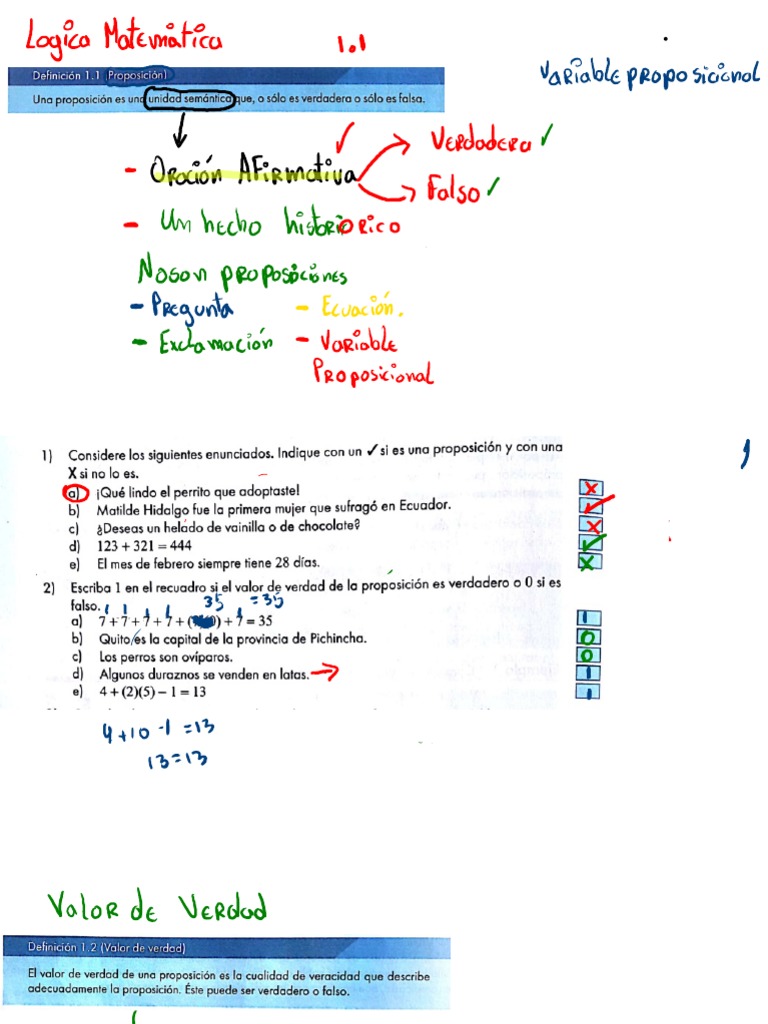 Logica Matemática 1.1
Variable proposicional
Definición 1.1 (Proposición)
Una proposición es una unidad semántica que, o sólo es verdadera o sólo es falsa.
- Oración Afirmativa
Verdadera ✓
Falso ✓
- Un hecho historiorico
No son proposiciones
- Pregunta - Ecuación.
- Exclamación - Variable
Proposicional
1) Considere los siguientes enunciados. Indique con un ✓ si es una proposición y con una
X si no lo es.
a) ¡Qué lindo el perrito que adoptaste! X
b) Matilde Hidalgo fue la primera mujer que sufragó en Ecuador. ✓
c) ¿Deseas un helado de vainilla o de chocolate? X
d) 123 + 321 = 444 ✓
e) El mes de febrero siempre tiene 28 días. X
2) Escriba 1 en el recuadro si el valor de verdad de la proposición es verdadero o 0 si es
falso.
35 = 35
a) 7 + 7 + 7 + 7 + ( 0) + 7 = 35 1
b) Quito es la capital de la provincia de Pichincha. 0
c) Los perros son ovíparos. 0
d) Algunos duraznos se venden en latas. → 1
e) 4 + (2)(5) – 1 = 13 1
4 + 10 - 1 = 13
13 = 13
Valor de Verdad
Definición 1.2 (Valor de verdad)
El valor de verdad de una proposición es la cualidad de veracidad que describe
adecuadamente la proposición. Éste puede ser verdadero o falso.